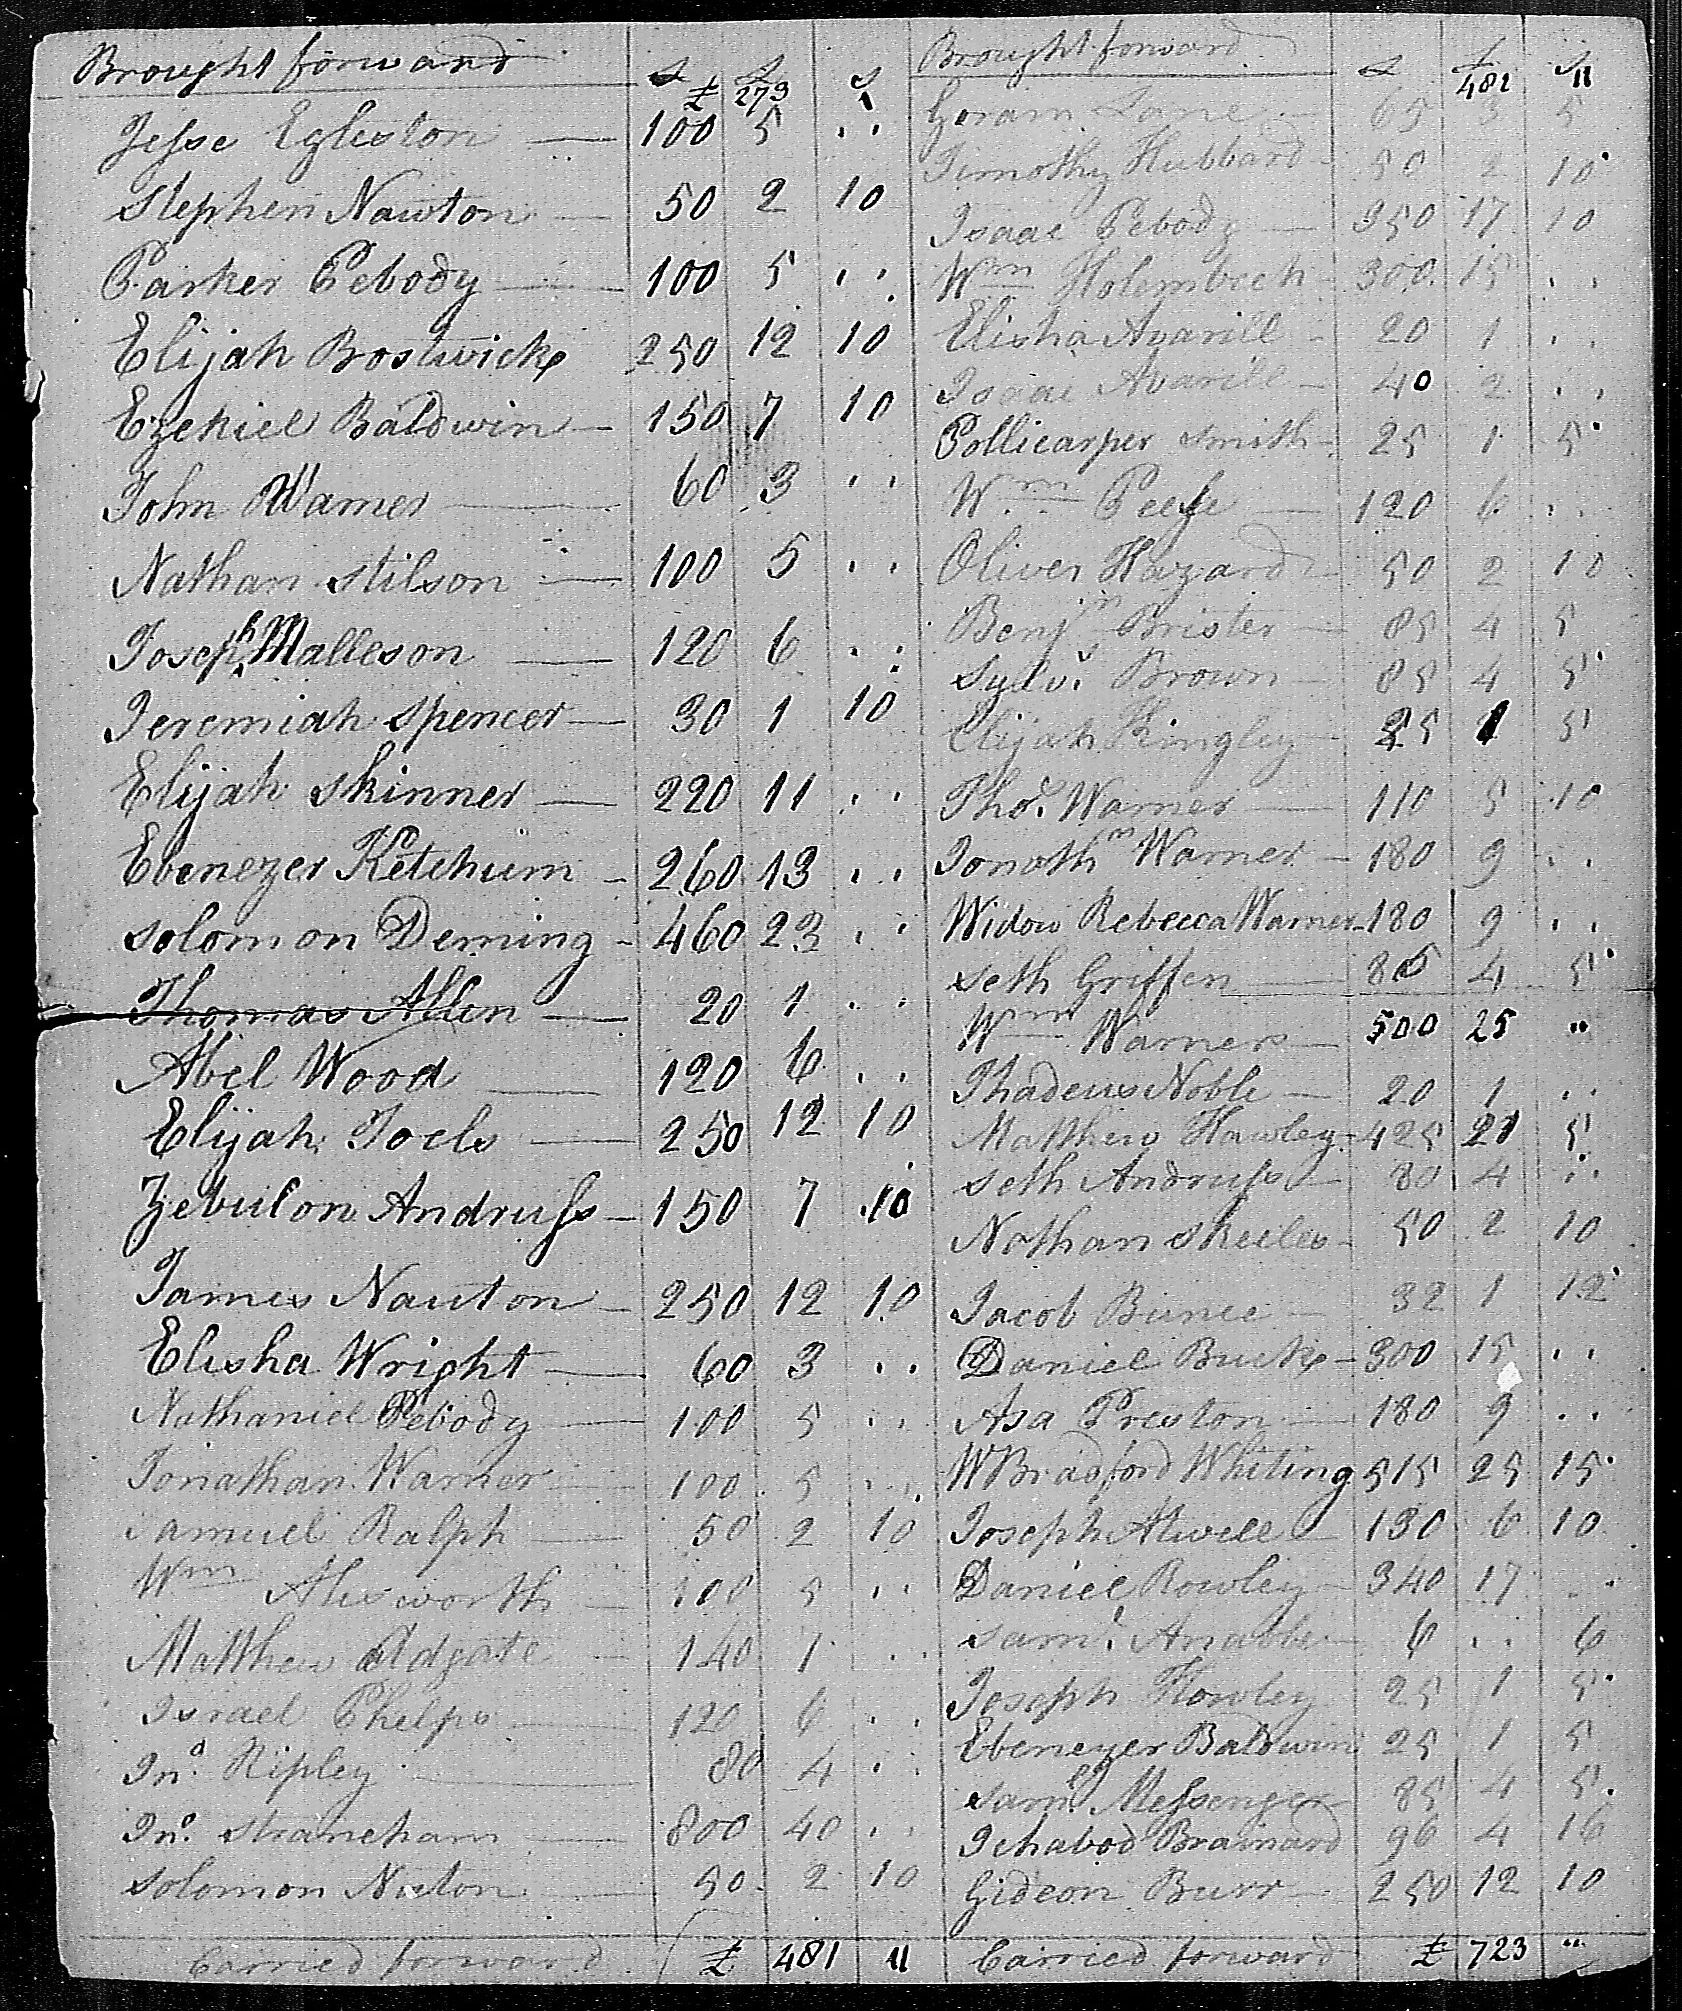 Brought forward £ £ s
£ 279 1
Jesse Egleston 100 5 ..
Stephen Nawton 50 2 10
Parker Pebody 100 5 ..
Elijah Bostwick 250 12 10
Ezekiel Baldwin 150 7 10
John Warner 60 3 ..
Nathan Stilson 100 5 ..
Joseph Malleson 120 6 ..
Jeremiah Spencer 30 1 10
Elijah Skinner 220 11 ..
Ebenezer Ketchum 260 13 ..
Solomon Deming 460 23 ..
Thomas Allen 20 1 ..
Abel Wood 120 6 ..
Elijah Joels 250 12 10
Zebulon Andruss 150 7 10
James Nauton 250 12 10
Elisha Wright 60 3 ..
Nathaniel Pebody 100 5 ..
Jonathan Warner 100 5 ..
Samuel Ralph 50 2 10
Wm Alisworth 100 5 ..
Matthew Adgate 140 7 ..
Israel Phelps 120 6 ..
Jno. Ripley 80 4 ..
Jno. Straneham 800 40 ..
Solomon Nuton 50 2 10
Carried forward £ 481 11
Brought forward £ £ s
481 11
Goram Lane 65 3 5
Timothy Hubbard 50 2 10
Isaac Pebody 350 17 10
Wm Holembeck 300 15 ..
Elisha Avarill 20 1 ..
Isaac Avarill 40 2 ..
Pollicarper Smith 25 1 5
Wm Peese 120 6 ..
Oliver Hazard 50 2 10
Benjn Brister 85 4 5
Sylvs. Brown 85 4 5
Elijah Kingley 25 1 5
Thos. Warner 110 5 10
Jonathn Warner 180 9 ..
Widow Rebecca Warner 180 9 ..
Seth Griffen 85 4 5
Wm Warner 500 25 "
Thadeus Noble 20 1 ..
Matthew Hawley 425 21 5
Seth Andruss 80 4 ..
Nathan Skeeles 50 2 10
Jacob Bunce 32 1 12
Daniel Buck 300 15 ..
Asa Preston 180 9 ..
WBradford Whiting 515 25 15
Joseph Atwell 130 6 10
Daniel Rowley 340 17 ..
Saml. Anable 6 .. 6
Joseph Howley 25 1 5
Ebenezer Baldwin 25 1 5
Saml. Messenger 85 4 5
Ichabod Brainard 96 4 16
Gideon Burr 250 12 10
Carried forward £ 723 "